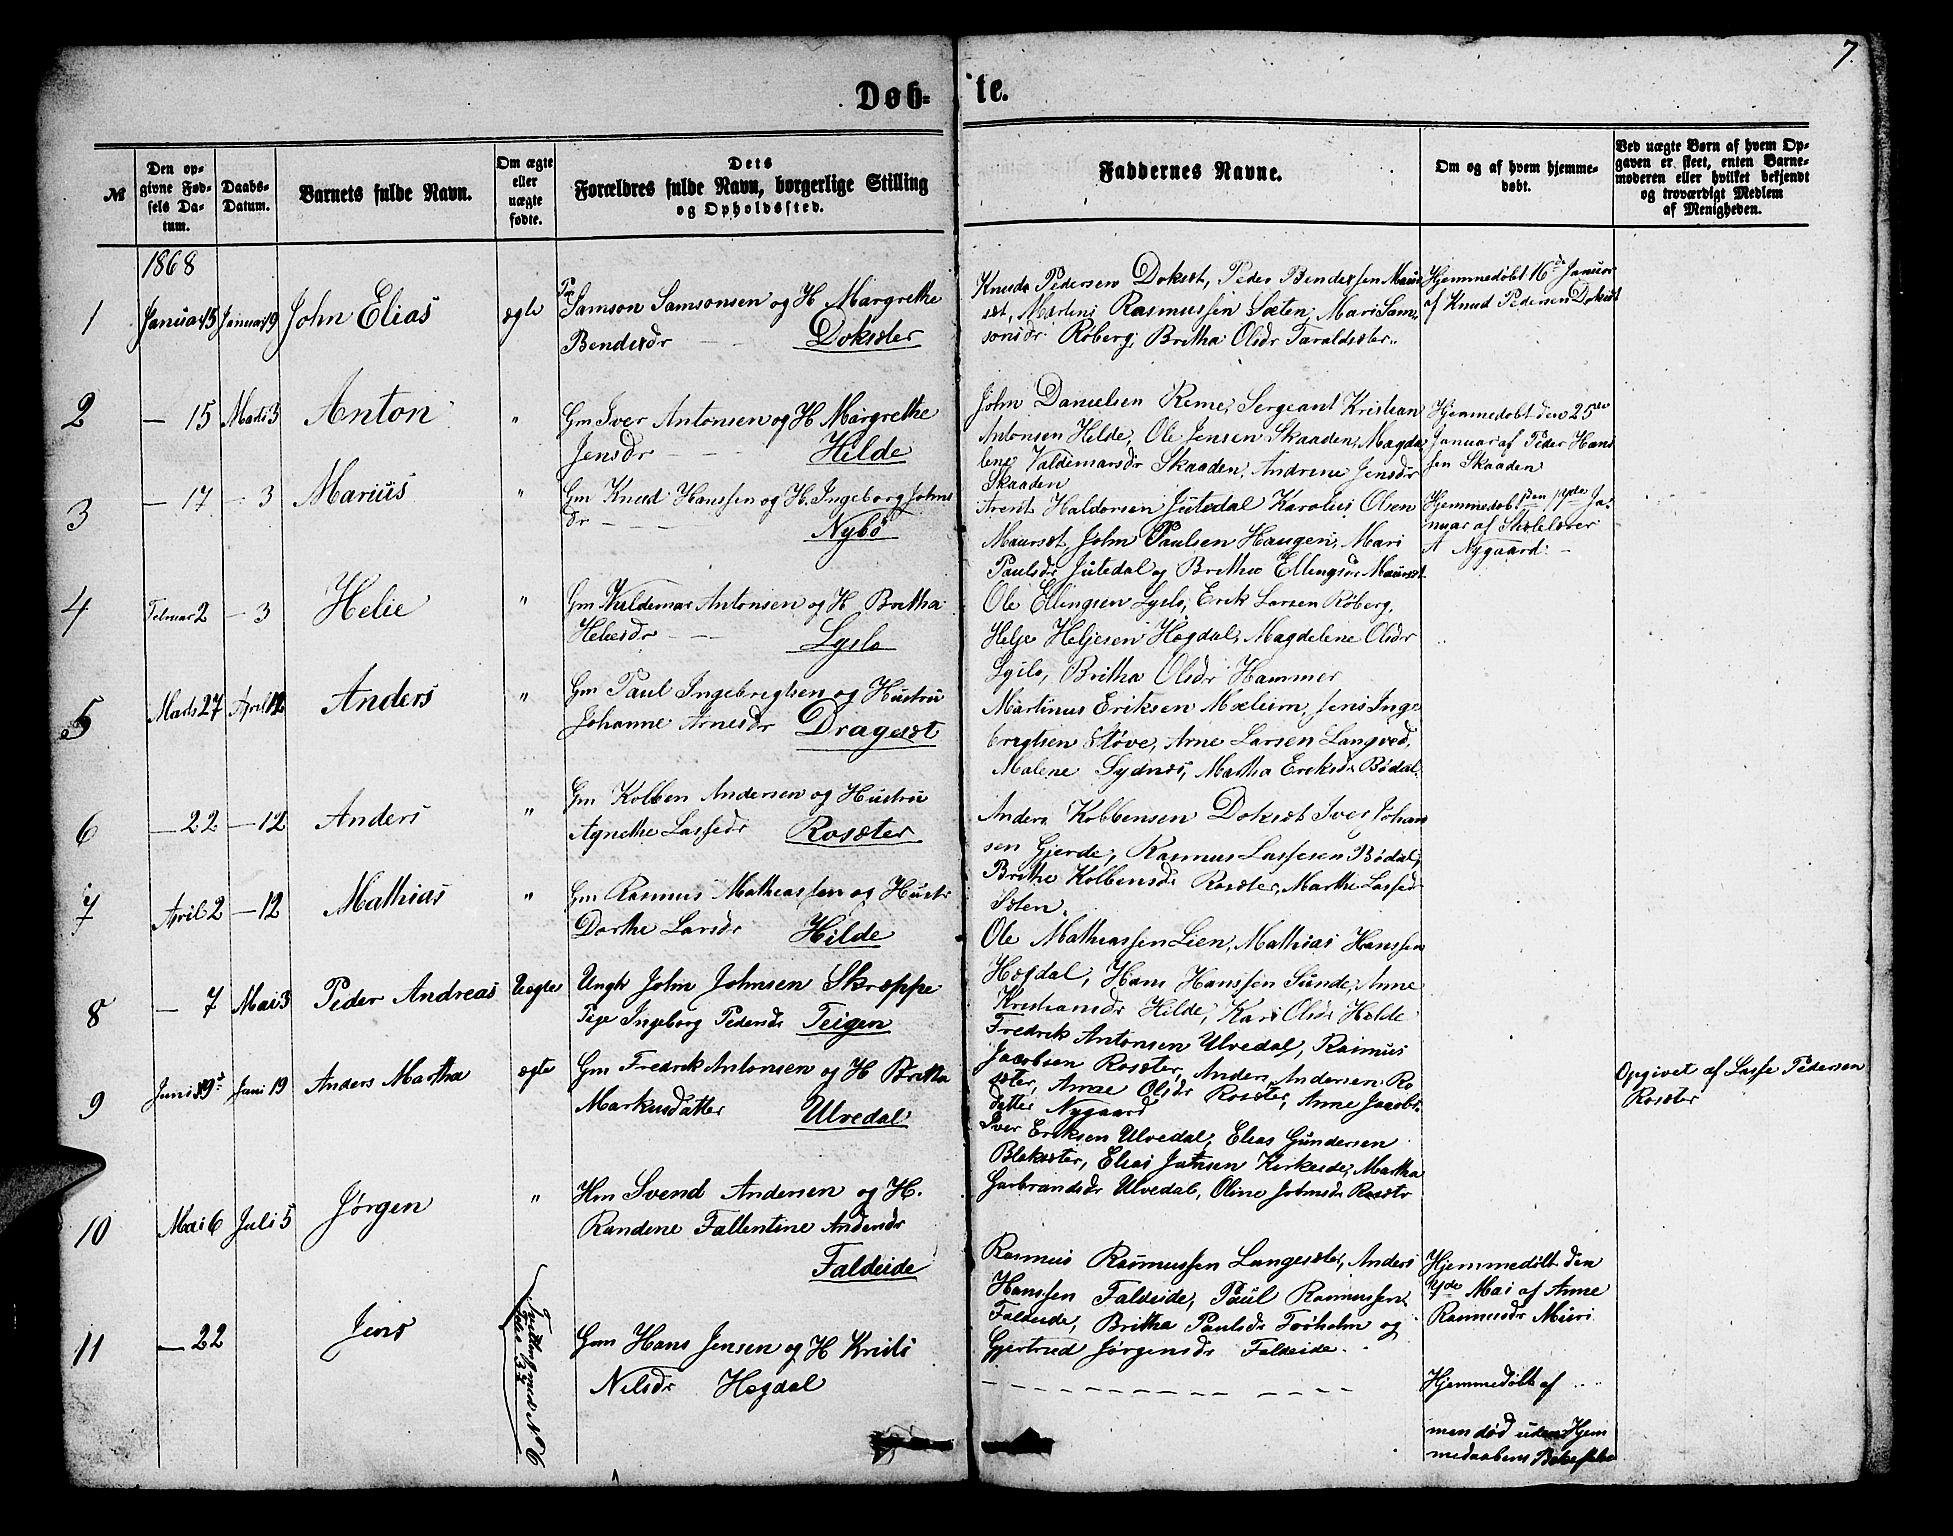 7.
Døb-
te.
№
Den op-
givne Fød-
sels Da-
tum.
Daabs-
Datum.
Barnets fulde Navn.
Om ægte
eller
uægte
fødte.
Dets
Forældres fulde Navn, borgerlige Stilling
og Opholdssted.
Faddernes Navne.
Om og af hvem hjemme-
døbt.
Ved uægte Børn af hvem Op-
gaven er skeet, enten Barne-
moderen eller hvilket bekjendt
og troværdigt Medlem
af Menigheden.
1868
1 Januar 15 Januar 19 John Elias ægte
Samson Samsonsen og H. Margrethe
Bendixdr - Doksæter
Knud Pedersen Doksæt, Peder Bendixsen Maur
sæt, Martini Rasmussen Sæten, Mari Sam
sonsdr Roberg, Britha Olsdr Taraldsæter..
Hjemmedøbt 16de Januar
af Knud Pedersen Doksæt
2 — 15 Marts 3 Anton "
Gm Iver Antonsen og H Margrethe
Jensdr - - Hilde
John Danielsen Reme, Sergeant Kristian
Antonsen Hilde, Ole Jensen Skaaden, Magda
lene Valdemarsdr Skaaden, Andrene Jensdr
Skaaden
Hjemmedøbt den 25de
Januar af Peder Hans
sen Skaaden
3 — 17 — 3 Marius "
Gm Knud Hanssen og H. Ingeborg Johns
dr - - - Nybø
Arent Haldorsen Jutedal Karolus Olsen
Maursæt, John Paulsen Haugen, Mari
Paulsdr Jutedal og Britha Ellingsdr Maursæt
Hjemmedøbt den Ja
nuar af Skolelærer
A Nygaard. -
4 Februar 2 — 3 Helie "
Gm Valdemar Antonsen og H Britha
Heliesdr - - Lyslo
Ole Ellingsen Lyslo, Erik Larsen Roberg,
Helje Heljesen Hogdal, Magdelene Olsdr
Lyslo, Britha Olsdr Hammer
5 Marts 27 April 12 Anders "
Gm Paul Ingebrigtsen og Hustru
Johanne Arnesdr Dragesæt
Martinus Eriksen Mælum, Jens Inge
brigtsen Støve, Arne Larsen Langved,
Malene Sydnes, Martha Eriksdr Bødal
6 — 22 — 12 Anders "
Gm Kolben Andersen og Hustru
Agnethe Lassedr Rosæter
Anders Kolbensen Doksæt Iver Johan
sen Gjerde, Rasmus Lassesen Bødal,
Brithe Kolbensdr Rosæter, Marthe Lassedr
Sæten.
7 April 2 — 12 Mathias "
Gm Rasmus Mathiassen og Hustr
Dorthe Larsdr Hilde
Ole Mathiassen Lien, Mathias Hanssen
Hogdal, Hans Hanssen Sunde, Anne
Kristiansdr Hilde, Kari Olsdr Hilde
8 — 7 Mai 3 Peder Andreas Uægte
Ungk John Johnsen Skreppe
Pige Ingeborg Pedersdr Teigen
Fredrik Antonsen Ulvedal, Rasmus
Jacobsen Rosæter, Anders Andersen Ro
sæter, Anne Olsdr Rosæter, Anne Jacobs
datter Nygaard
Opgivet af Lasse Pedersen
Rosæter
9 Juni Juni 19 Anders Martha ægte
Gm Fredrik Antonsen og H Britha
Markusdatter Ulvedal
Iver Eriksen Ulvedal, Elias Gundersen
Blaksæter, Elias Jansen Kirkeide, Martha
Garbrandsdr Ulvedal, Oline Johnsdr Rosætr
10 Mai 6 Juli 5 Jørgen "
Hm Svend Andersen og H.
Randene Fallentine Andersdr
Faldeide
Rasmus Rasmussen Langesæter, Anders
Hanssen Faldeide, Paul Rasmussen
Faldeide, Britha Paulsdr Forholm og
Gjertrud Jørgensdr Faldeide.
Hjemmedøbt den
7de Mai af Anne
Rasmusdr Muri
11 — 22 Jens
Tvilling № 6
Gm Hans Jensen og H Kristi
Nilsdr Hogdal
Hjemmedøbt af ....
men død uden Hjem
medaabens